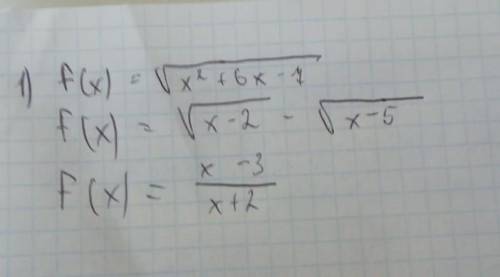 1) f(x) = √(x² + 6x - 7)
f(x) = √(x-2) - √(x-5)
f(x) = (x - 3)/(x+2)